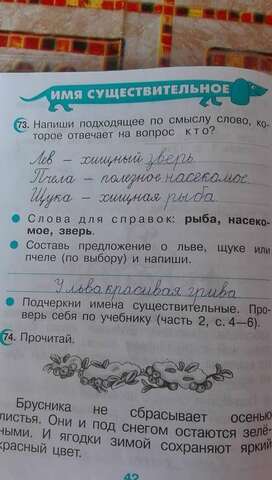 ИМЯ СУЩЕСТВИТЕЛЬНОЕ
73. Напиши подходящее по смыслу слово, ко-
торое отвечает на вопрос кто?
Лев – хищный зверь
Пчела – полезное насекомос
Щука – хищная рыба
● Слова для справок: рыба, насеко-
мое, зверь.
● Составь предложение о льве, щуке или
пчеле (по выбору) и напиши.
У льва красивая грива
● Подчеркни имена существительные. Про-
верь себя по учебнику (часть 2, с. 4–6).
74. Прочитай.
Брусника не сбрасывает осенью
листья. Они и под снегом остаются зелё-
ными. И ягодки зимой сохраняют яркий
красный цвет.
42